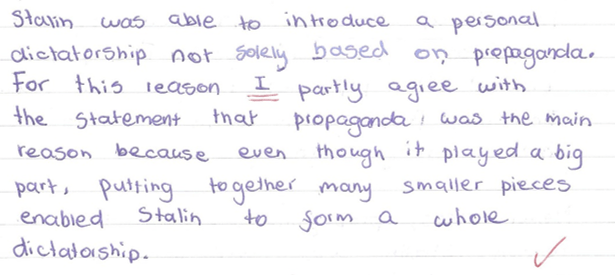 Stalin was able to introduce a personal
dictatorship not solely based on propaganda.
For this reason I partly agree with
the statement that propaganda, was the main
reason because even though it played a big
part, putting together many smaller pieces
enabled Stalin to form a whole
dictatorship.